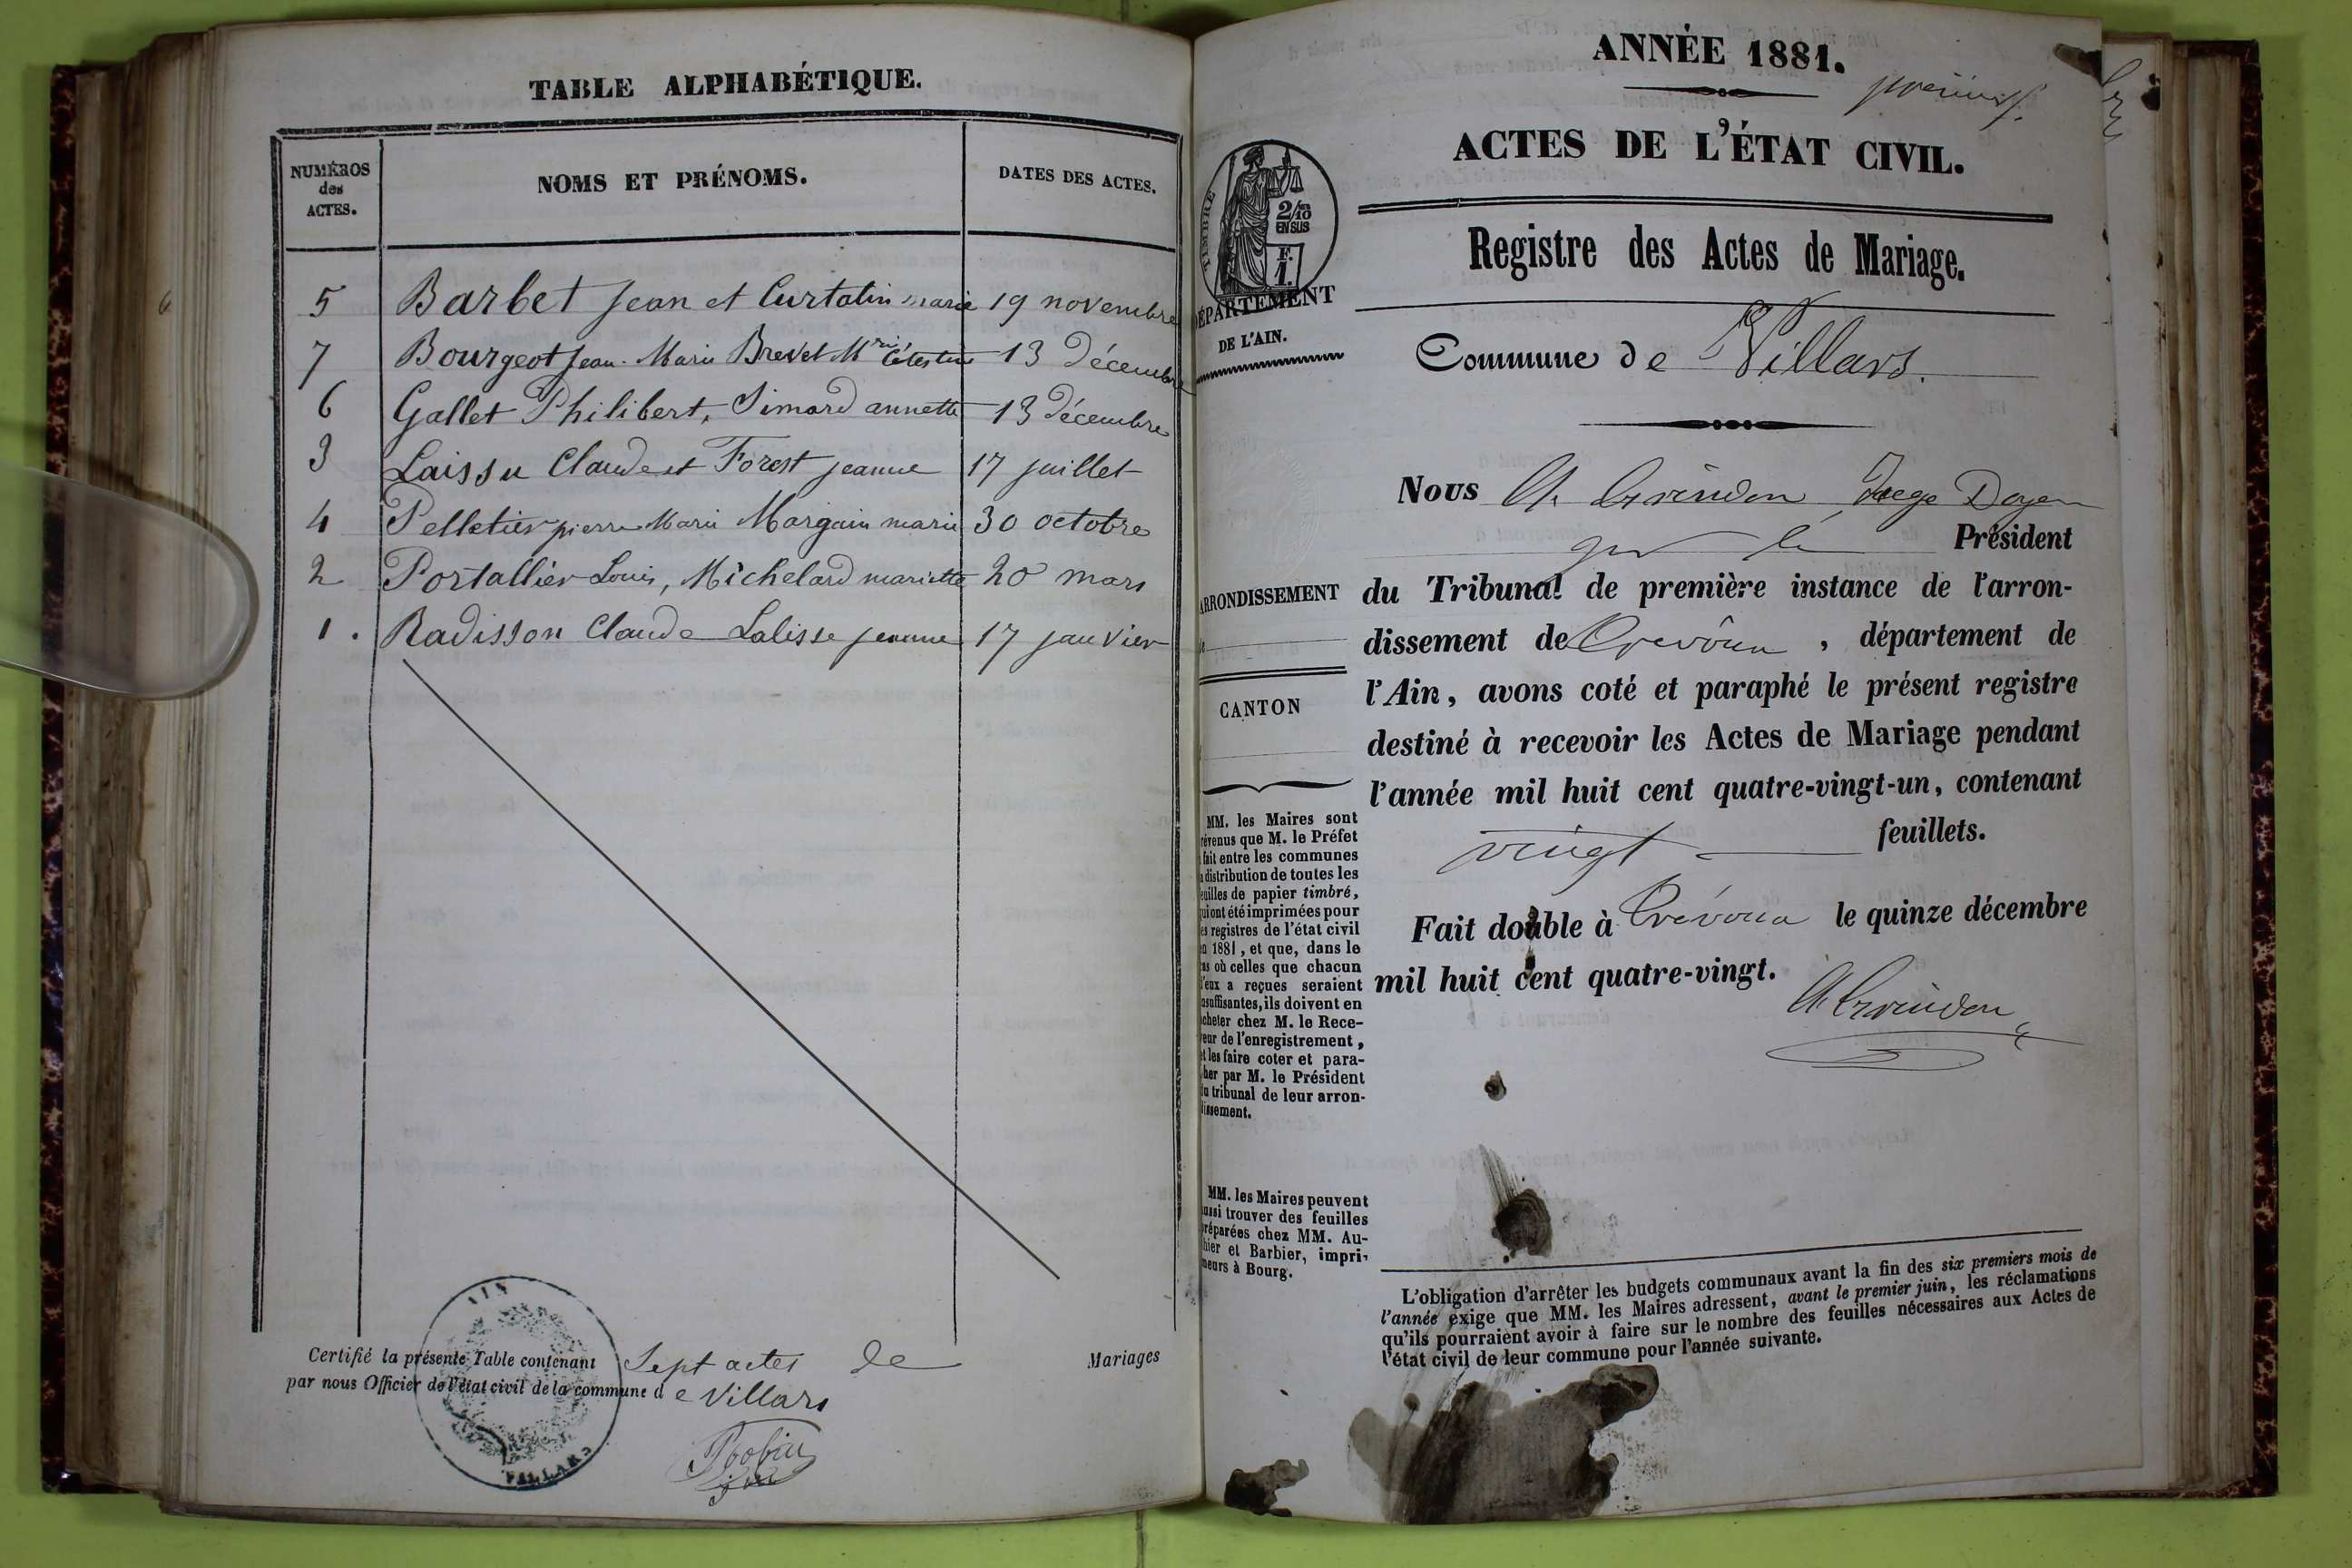 TABLE ALPHABÉTIQUE.
NUMÉROS des ACTES.
NOMS ET PRÉNOMS.
DATES DES ACTES.
5 Barbet Jean et Curtalin marie 19 novembre
7 Bourgeot Jean-Marie Brevet Mrie Célestine 13 Décembre
6 Gallet Philibert, Simard annette 13 décembre
3 Laissu Claude et Forest jeanne 17 juillet
4 Pelletier pierre Marie Margain marie 30 octobre
2 Portallier Louis, Michelard mariette 20 mars
1. Radisson Claude Lalisse jeanne 17 janvier
Certifié la présente Table contenant Sept actes de Mariages
par nous Officier de l'état civil de la commune de Villars
Robin
AIN
VILLARS
ANNÉE 1881.
ACTES DE L'ÉTAT CIVIL.
Registre des Actes de Mariage.
Commune de Villars.
TIMBRE
2/10 EN SUS
F. 1.
DÉPARTEMENT
DE L'AIN.
ARRONDISSEMENT
CANTON
MM. les Maires sont
prévenus que M. le Préfet
a fait entre les communes
la distribution de toutes les
feuilles de papier timbré,
qui ont été imprimées pour
les registres de l'état civil
en 1881, et que, dans le
cas où celles que chacun
d'eux a reçues seraient
insuffisantes, ils doivent en
acheter chez M. le Rece-
veur de l'enregistrement,
et les faire coter et para-
pher par M. le Président
du tribunal de leur arron-
dissement.
MM. les Maires peuvent
aussi trouver des feuilles
préparées chez MM. Au-
thier et Barbier, impri-
meurs à Bourg.
Nous Juge Doyen
Président
du Tribunal de première instance de l'arron-
dissement de Trévoux, département de
l'Ain, avons coté et paraphé le présent registre
destiné à recevoir les Actes de Mariage pendant
l'année mil huit cent quatre-vingt-un, contenant
vingt feuillets.
Fait double à Trévoux le quinze décembre
mil huit cent quatre-vingt.
L'obligation d'arrêter les budgets communaux avant la fin des six premiers mois de
l'année exige que MM. les Maires adressent, avant le premier juin, les réclamations
qu'ils pourraient avoir à faire sur le nombre des feuilles nécessaires aux Actes de
l'état civil de leur commune pour l'année suivante.